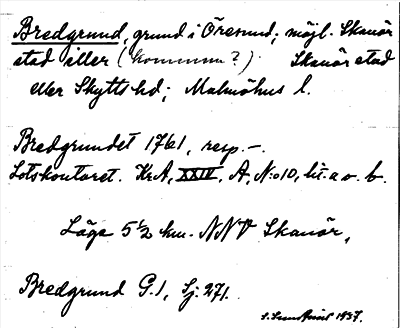 Bredgrund, grund i Öresund; möjl. Skanör
stad eller (kommun?) Skanör stad
eller Skytts hd; Malmöhus l.
Bredgrundet 1761, resp. –.
Lotskontoret. KrA, XXIV, A, N:o 10, lit. a o. b.
Läge 5 1/2 km. NNV Skanör,
Bredgrund G.1, Sj. 271.
1937.